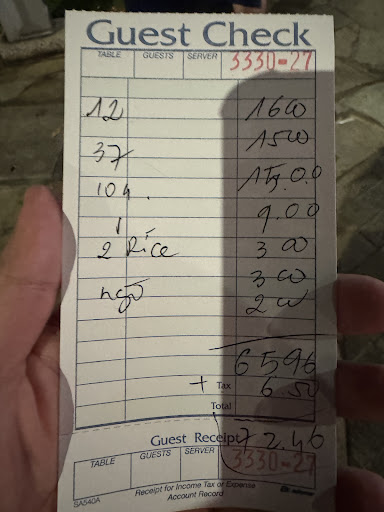 Guest Check
TABLE GUESTS SERVER 3330-27
12 16 00
37 15 00
104. 15.00
1 9.00
2 Rice 3 00
3 00
2 00
65 96
+ Tax 6 50
Total
Guest Receipt 72.46
TABLE GUESTS SERVER 3330-27
Receipt for Income Tax or Expense
Account Record
SA540A